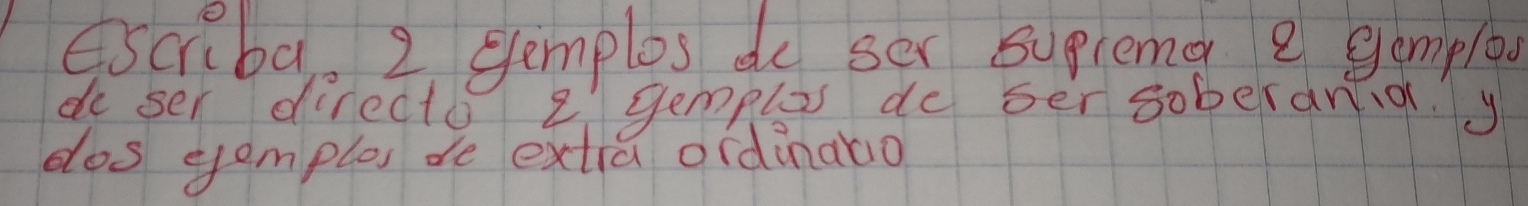 Escriba. 2 ejemplos de ser suprema 2 ejemplos
de ser directo 2 gemplos de ser soberania. y
dos ejemplos de extra ordinario